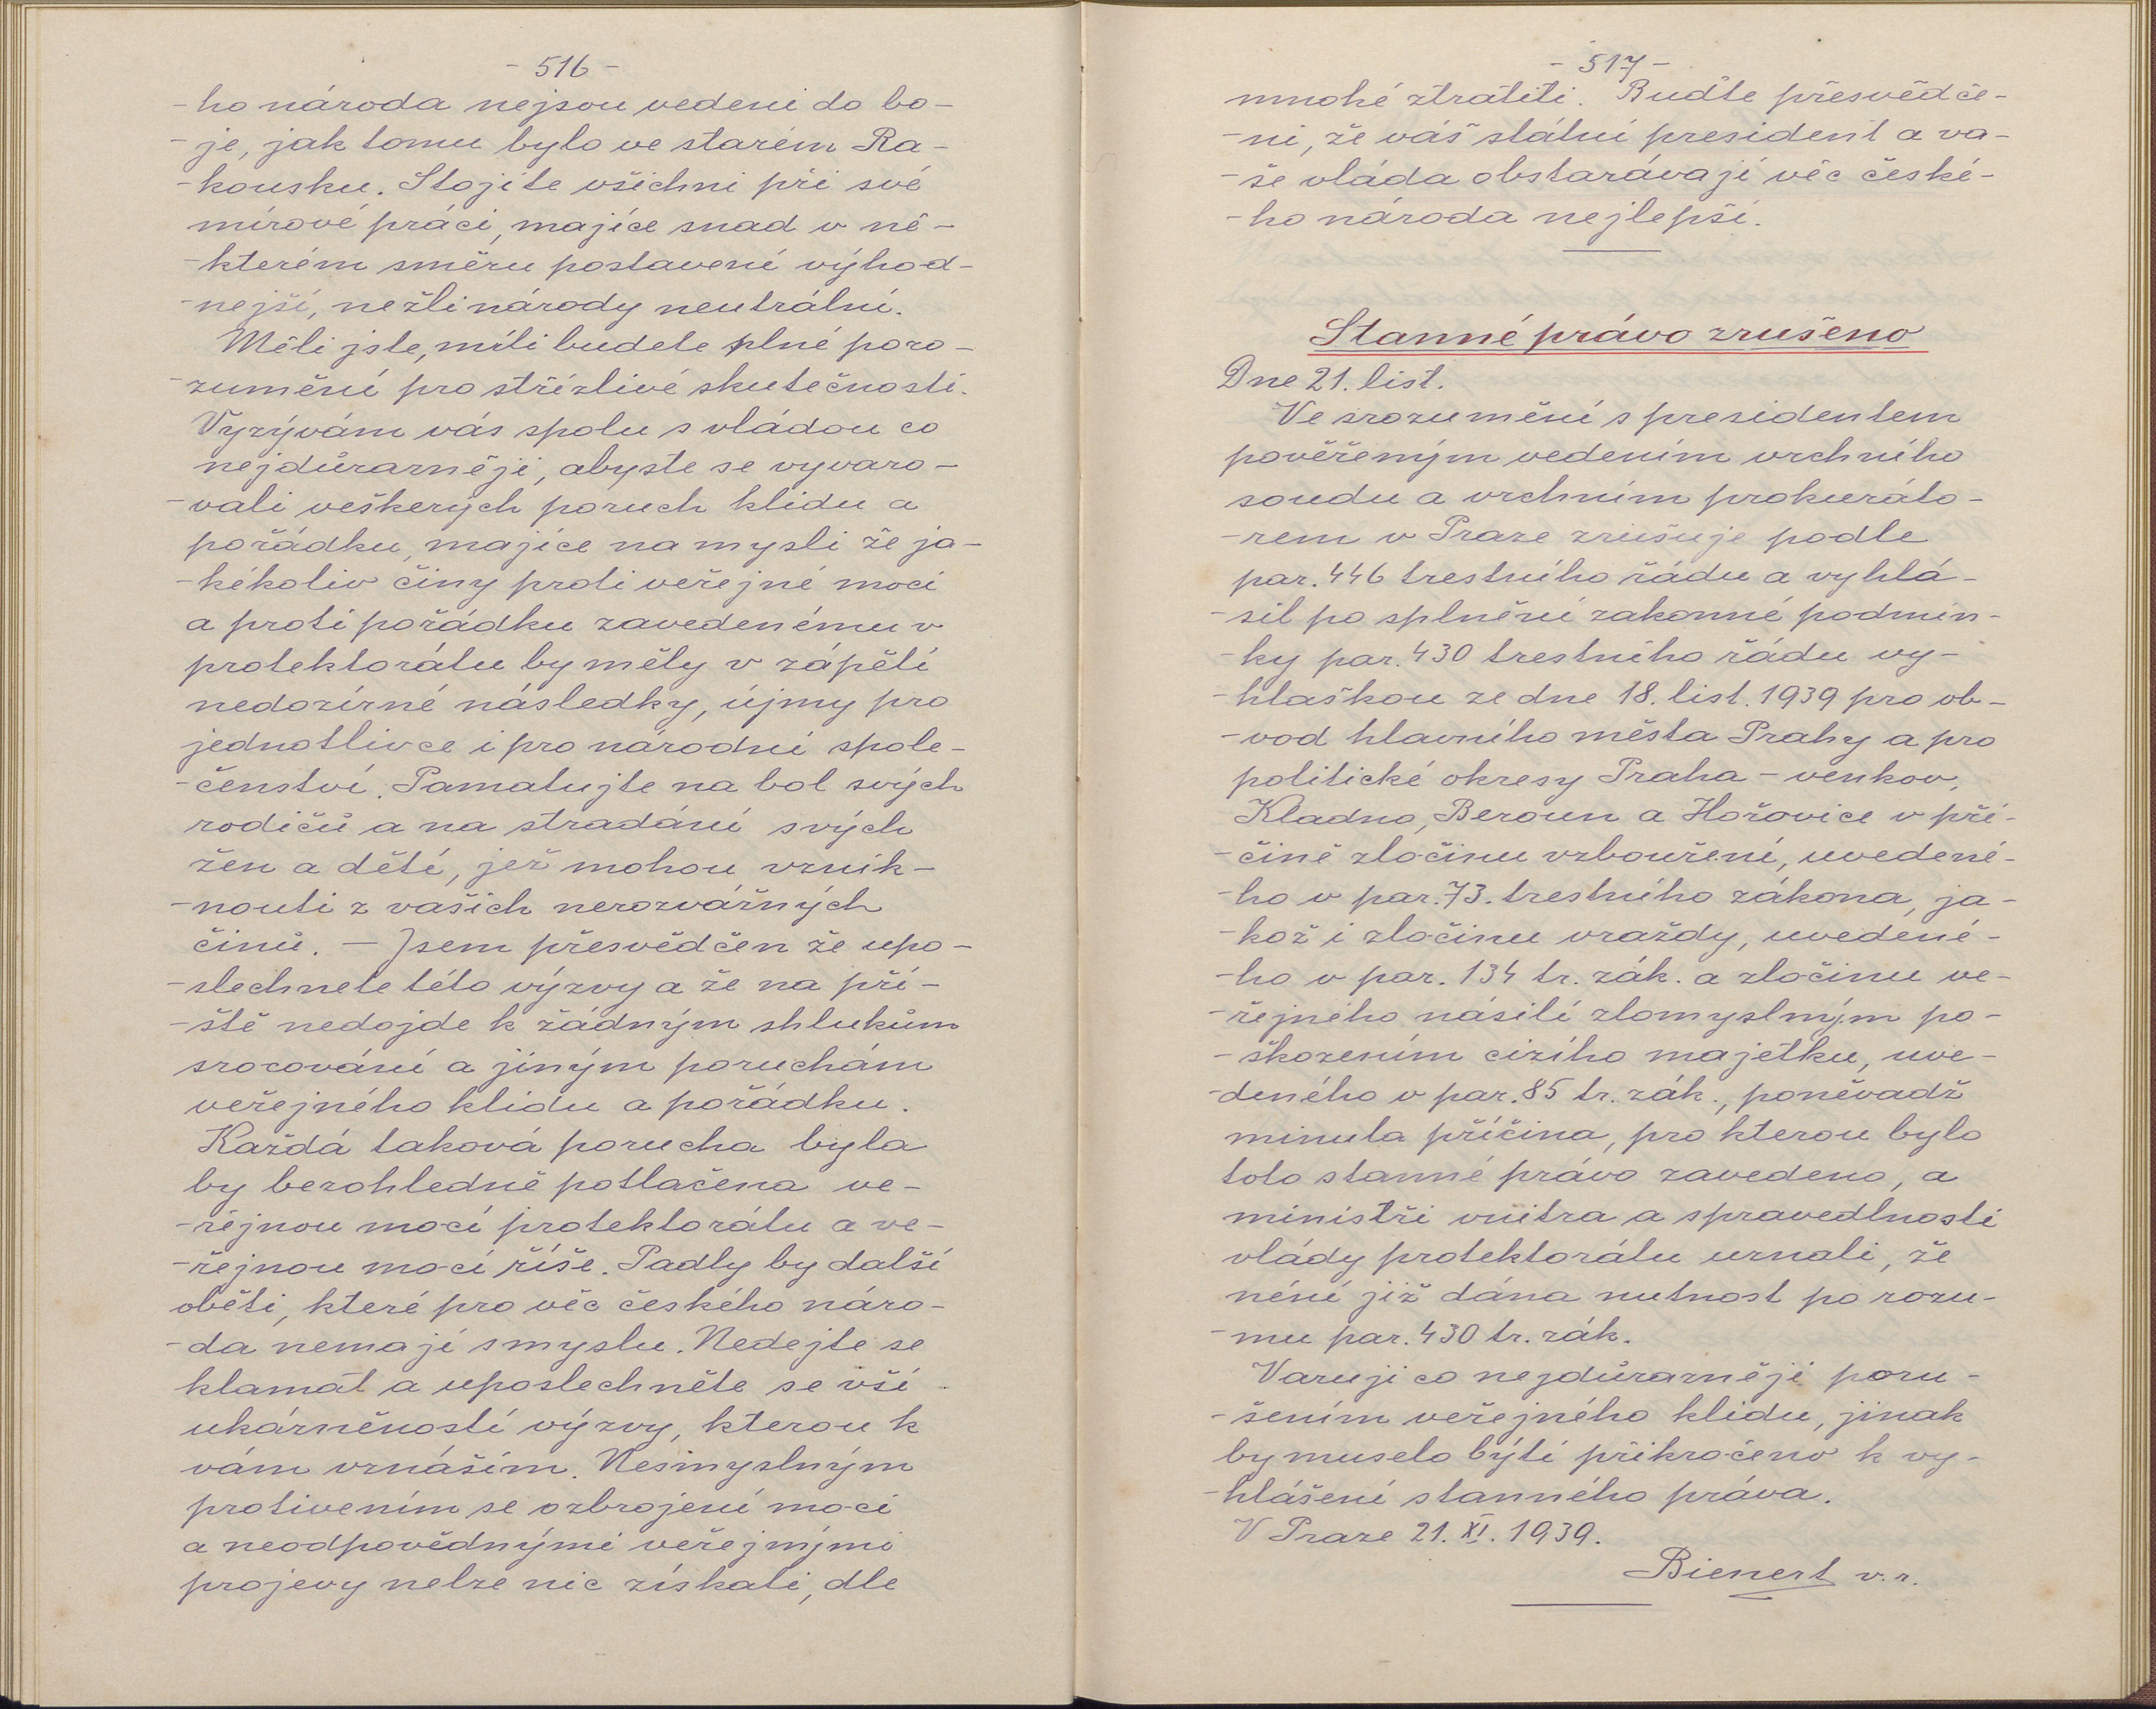 - 516 -
-ho národa nejsou vedeni do bo-
-je, jak tomu bylo ve starém Ra-
-kousku. Stojíte všichni při své
mírové práci, majíce snad v ně-
-kterém směru postavení výhod-
-nejší, nežli národy neutrální.
Měli jste, míti budete plné poro-
-zumění pro střízlivé skutečnosti.
Vyzývám vás spolu s vládou co
nejdůrazněji, abyste se vyvaro-
-vali veškerých poruch klidu a
pořádku, majíce na mysli že ja-
-kékoliv činy proti veřejné moci
a proti pořádku zavedenému v
protektorátu by měly v zápětí
nedozírné následky, újmy pro
jednotlivce i pro národní spole-
-čenství. Pamatujte na bol svých
rodičů a na stradání svých
žen a dětí, jež mohou vznik-
-nouti z vašich nerozvážných
činů. - Jsem přesvědčen že upo-
-slechnete této výzvy a že na pří-
-ště nedojde k žádným shlukům
srocování a jiným poruchám
veřejného klidu a pořádku.
Každá taková porucha byla
by bezohledně potlačena ve-
-řejnou mocí protektorátu a ve-
-řejnou mocí říše. Padly by další
oběti, které pro věc českého náro-
-da nemají smyslu. Nedejte se
klamat a uposlechněte se vší
ukázněností výzvy, kterou k
vám vznáším. Nesmyslným
protivením se ozbrojení moci
a neodpovědnými veřejnými
projevy nelze nic získati, dle
- 517 -
mnohé ztratiti. Buďte přesvědče-
-ni, že váš státní president a va-
-še vláda obstarávají věc české-
-ho národa nejlepší.
Stanné právo zrušeno
Dne 21. list.
Ve srozumění s presidentem
pověřeným vedením vrchního
soudu a vrchním prokuráto-
-rem v Praze zrušuje podle
par. 446 trestního řádu a vyhlá-
-sil po splnění zakonné podmín-
-ky par. 430 trestního řádu vy-
-hlaškou ze dne 18. list. 1939 pro ob-
-vod hlavního města Prahy a pro
politické okresy Praha - venkov,
Kladno, Beroun a Hořovice v pří-
-čině zločinu vzbouření, uvedené-
-ho v par. 73. trestního zákona, ja-
-kož i zločinu vraždy, uvedené-
-ho v par. 134 tr. zák. a zločinu ve-
-řejného násilí zlomyslným po-
-škozením cizího majetku, uve-
-deného v par. 85 tr. zák., poněvadž
minula příčina, pro kterou bylo
toto stanné právo zavedeno, a
ministři vnitra a spravedlnosti
vlády protektorátu uznali, že
néní již dána nutnost po rozu-
-mu par. 430 tr. zák.
Varuji co nejdůrazněji poru-
-šením veřejného klidu, jinak
by muselo býti přikročeno k vy-
-hlášení stanného práva.
V Praze 21. XI. 1939.
Bienert v. r.